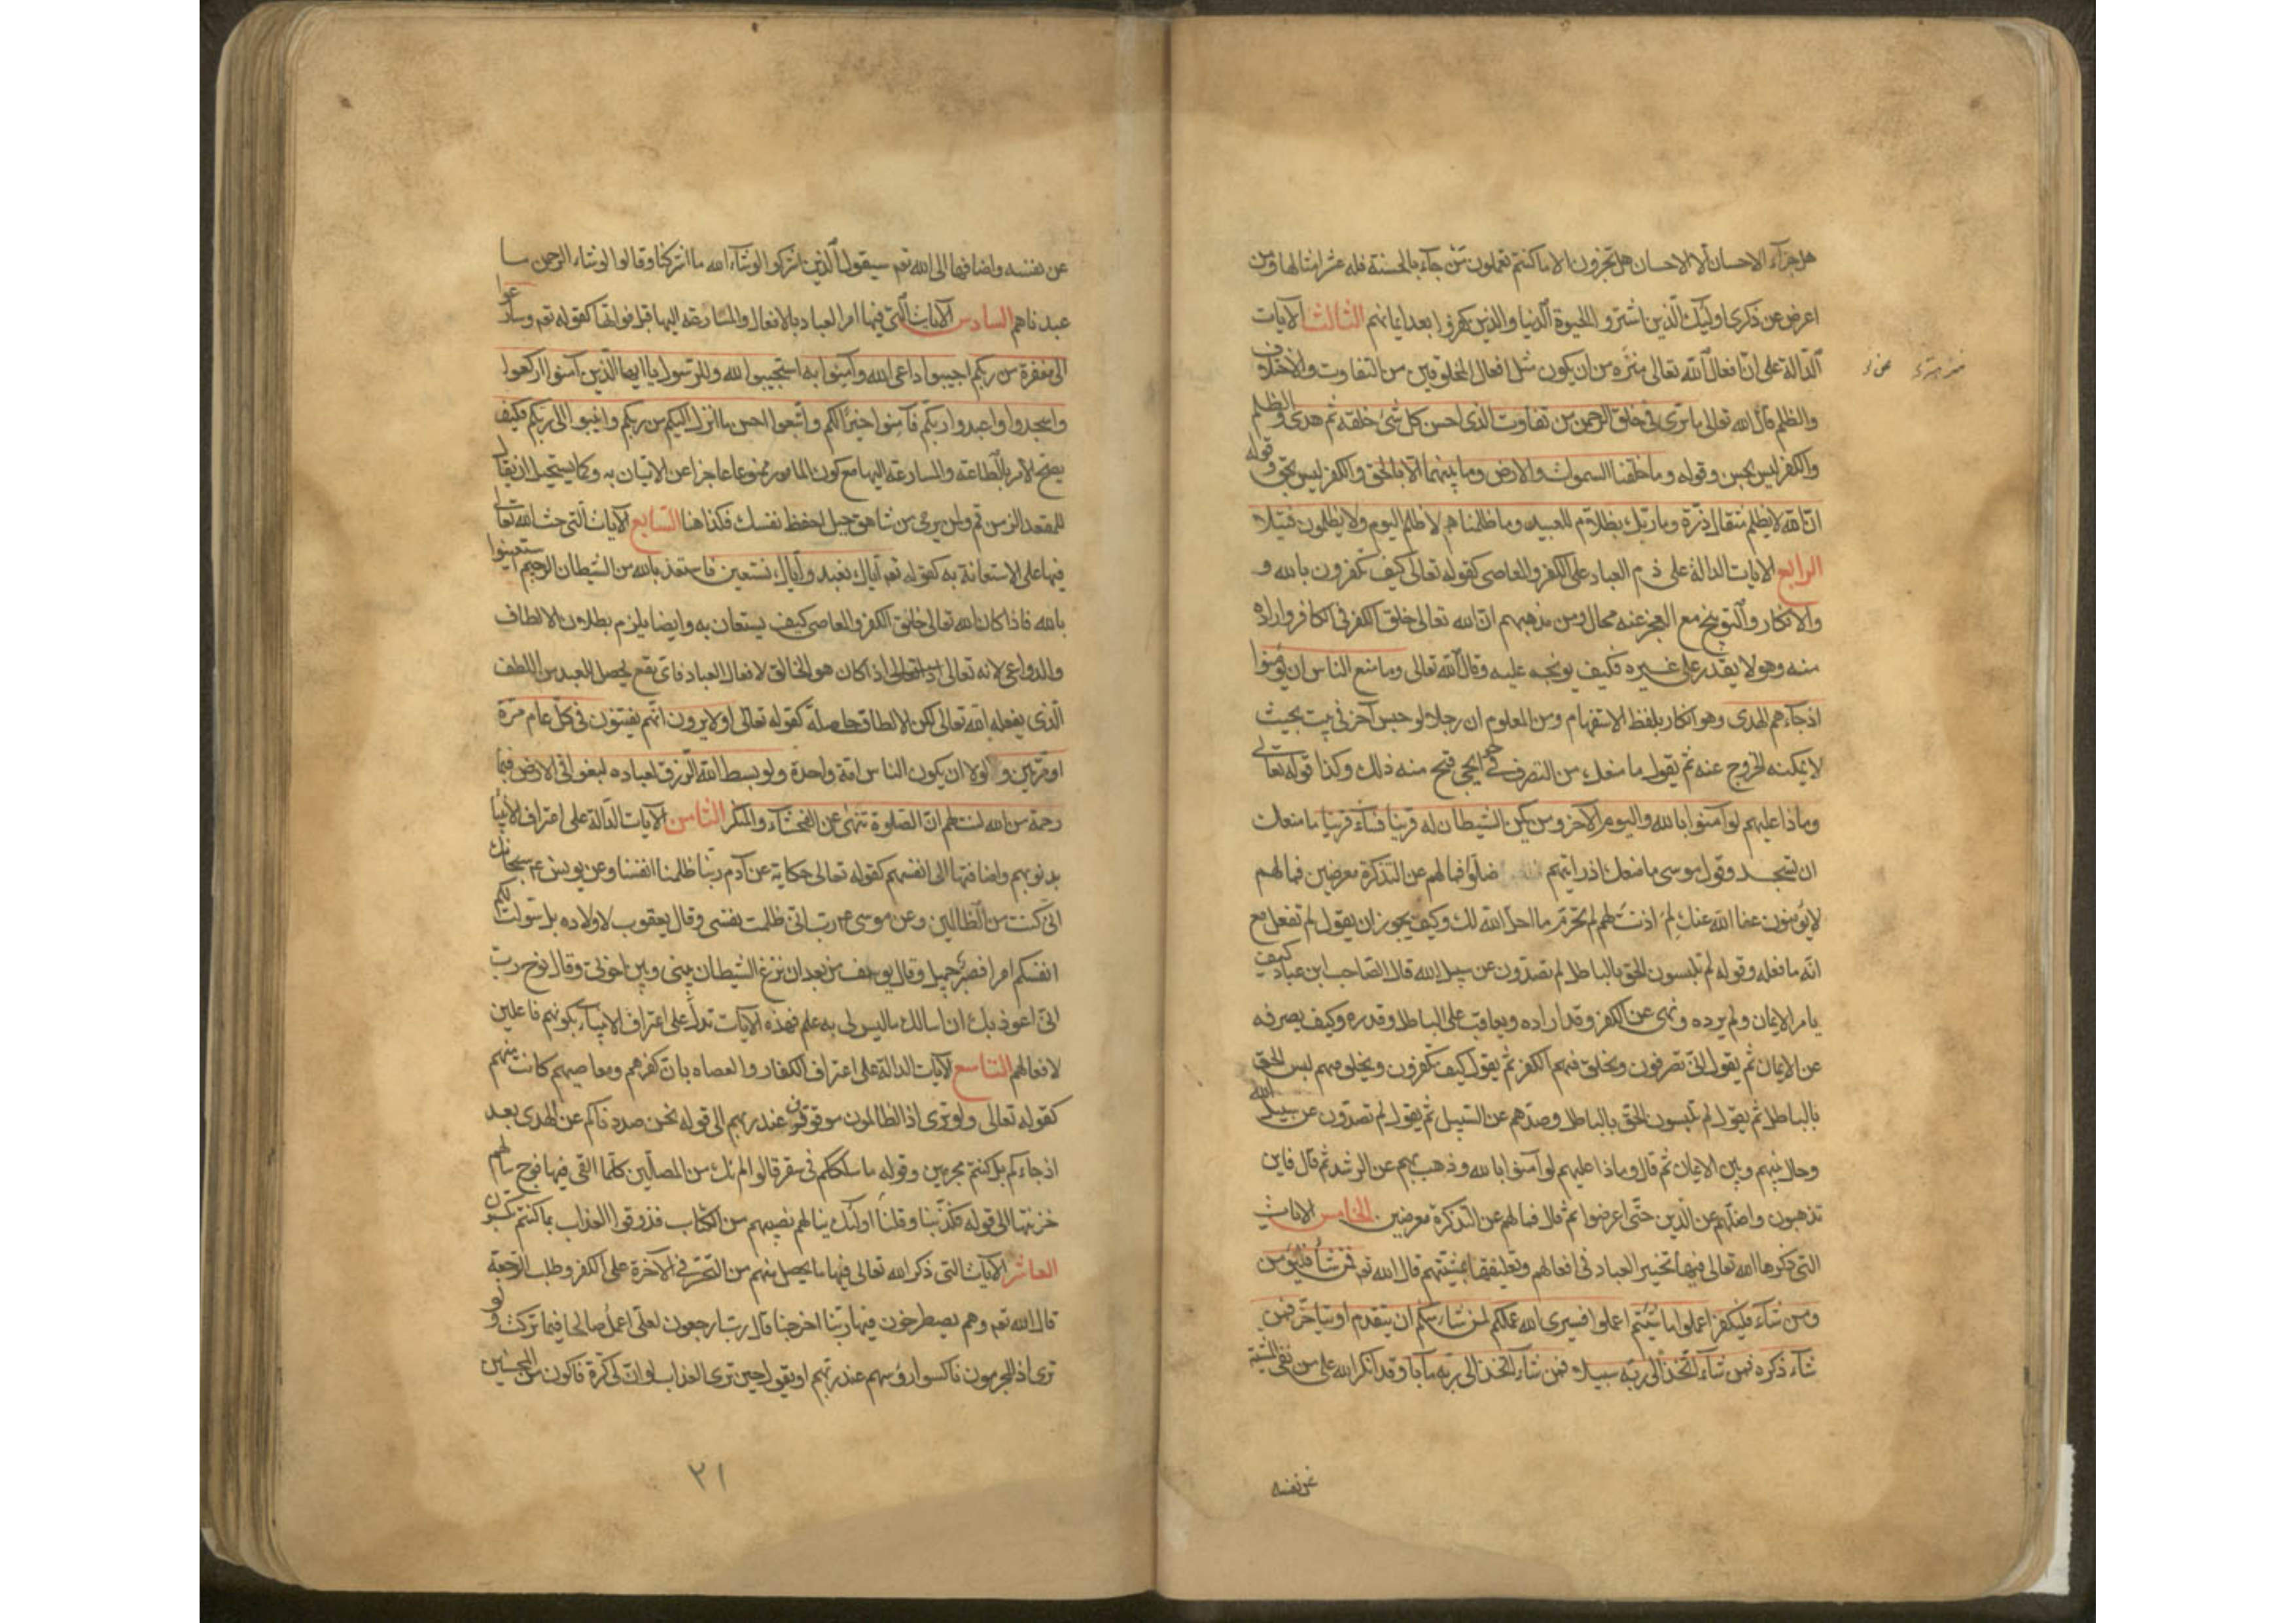 هل جزآء الاحسان الا الاحسان هل تجزون الا ما كنتم تعملون من جآء بالحسنة فله عشر امثالها ومن
اعرض عن ذكرى اوليك الذين اشتروا الحيوة الدنيا والذين كفروا بعد ايمانهم الثالث الآيات
الدالة على ان افعال الله تعالى منزه من ان يكون مثل افعال المخلوقين من التفاوت والاختلاف
والظلم قال الله تعالى ما ترى فى خلق الرحمن من تفاوت الذى احسن كل شئ خلقه ثم هدى والظلم
والكفر ليس بحسن وقوله وما خلقنا السموات والارض وما بينهما الا بالحق والكفر ليس بحق وقوله
ان الله لا يظلم مثقال ذرة وما ربك بظلام للعبيد وما ظلمناهم لا ظلم اليوم ولا يظلمون فتيلا
الرابع الايات الدالة على ذم العباد على الكفر والمعاصى كقوله تعالى كيف تكفرون بالله و
والانكار والتوبيخ مع العجز عنه محال ومن مذهبهم ان الله تعالى خلق الكفر فى الكافر واراده
منه وهو لا يقدر على غيره فكيف يوبخه عليه وقال الله تعالى وما منع الناس ان يؤمنوا
اذ جآءهم الهدى وهو انكار بلفظ الاستفهام ومن المعلوم ان رجلا لو حبس آخر فى بيت بحيث
لا يمكنه الخروج عنه ثم يقول ما منعك من التصرف فى حوايجى قبح منه ذلك وكذا قوله تعالى
وماذا عليهم لو آمنوا بالله واليوم الآخر ومن يكن الشيطان له قرينا فسآء قرينا ما منعك
ان تسجد وقول موسى ما منعك اذ رايتهم ضلوا فما لهم عن التذكرة معرضين فما لهم
لا يؤمنون عفا الله عنك لم اذنت لهم لم تحرم ما احل الله لك وكيف يجوز ان يقول لم تفعل مع
انه ما فعله وقوله لم تلبسون الحق بالباطل لم تصدون عن سبيل الله قال الصاحب ابن عباد كيف
يامر الايمان ولم يرده ونهى عن الكفر وقد اراده ويعاقب على الباطل وقدره وكيف يصرفه
عن الايمان ثم يقول انى تصرفون ويخلق فيهم الكفر ثم يقول كيف تكفرون ويخلق فيهم لبس الحق
بالباطل ثم يقول لم تلبسون الحق بالباطل وصدهم عن السبيل ثم يقول لم تصدون عن سبيل الله
وحال بينهم وبين الايمان ثم قال وماذا عليهم لو آمنوا بالله وذهب بهم عن الرشد ثم قال فاين
تذهبون واضلهم عن الدين حتى اعرضوا ثم قال فما لهم عن التذكرة معرضين الخامس الايات
التى ذكرها الله تعالى فيها تخيير العباد فى افعالهم وتعليقها بمشيتهم قال الله تع فمن شآء فليؤمن
ومن شآء فليكفر اعملوا ما شئتم اعملوا فسيرى الله عملكم لمن شآء منكم ان يتقدم او يتاخر فمن
شآء ذكره فمن شآء اتخذ الى ربه سبيلا فمن شآء اتخذ الى ربه مآبا وقد انكر الله على من نفى المشية
عن نفسه
عن نفسه واضافها الى الله تع سيقول الذين اشركوا لو شآء الله ما اشركنا وقالوا لو شاء الرحمن ما
عبدناهم السادس الآيات التى فيها امر العباد بالافعال والمسارعة اليها قبل فواتها كقوله تع وسارعوا
الى مغفرة من ربكم اجيبوا داعى الله وآمنوا به استجيبوا لله وللرسول يا ايها الذين آمنوا اركعوا
واسجدوا واعبدوا ربكم فآمنوا خيرا لكم واتبعوا احسن ما انزل اليكم من ربكم وانيبوا الى ربكم فكيف
يصح الامر بالطاعة والمسارعة اليها مع كون المامور ممنوعا عاجزا عن الاتيان به وكما يستحيل ان يقال
للمقعد الزمن قم ولمن يرمى من شاهق جبل احفظ نفسك فكذا هنا السابع الآيات التى حث الله تعالى
فيها على الاستعانة به كقوله تع اياك نعبد واياك نستعين فاستعذ بالله من الشيطان الرجيم استعينوا
بالله فاذا كان الله تعالى خالق الكفر والمعاصى كيف يستعان به وايضا يلزم بطلان الالطاف
والدواعى لانه تعالى اذا كان هو الخالق لافعال العباد فاى نفع يحصل للعبد من اللطف
الذى يفعله الله تعالى لكن الالطاف حاصلة كقوله تعالى اولا يرون انهم يفتنون فى كل عام مرة
او مرتين ولولا ان يكون الناس امة واحدة ولو بسط الله الرزق لعباده لبغوا فى الارض فبما
رحمة من الله لنت لهم ان الصلوة تنهى عن الفحشآء والمنكر الثامن الآيات الدالة على اعتراف الانبيا
بذنوبهم واضافتها الى انفسهم كقوله تعالى حكاية عن آدم ربنا ظلمنا انفسنا وعن يونس ع سبحانك
انى كنت من الظالمين وعن موسى ع رب انى ظلمت نفسى وقال يعقوب لاولاده بل سولت لكم
انفسكم امرا فصبر جميل وقال يوسف من بعد ان نزغ الشيطان بينى وبين اخوتى وقال نوح رب
انى اعوذ بك ان اسالك ما ليس لى به علم فهذه الآيات تدل على اعتراف الانبياء بكونهم فاعلين
لافعالهم التاسع الآيات الدالة على اعتراف الكفار والعصاه بان كفرهم ومعاصيهم كانت منهم
كقوله تعالى ولو ترى اذ الظالمون موقوفون عند ربهم الى قوله نحن صددناكم عن الهدى بعد
اذ جاءكم بل كنتم مجرمين وقوله ما سلككم فى سقر قالوا لم نك من المصلين كلما القى فيها فوج سالهم
خزنتها الى قوله فكذبنا وقلنا اولئك ينالهم نصيبهم من الكتاب فذوقوا العذاب بما كنتم تكسبون
العاشر الآيات التى ذكر الله تعالى فيها ما يحصل منهم من التحسر فى الآخرة على الكفر وطلب الرجعة
قال الله تع وهم يصطرخون فيها ربنا اخرجنا قال رب ارجعون لعلى اعمل صالحا فيما تركت ولو
ترى اذ المجرمون ناكسوا رؤسهم عند ربهم او يقول حين ترى العذاب لو ان لى كرة فاكون من المحسنين
٢١